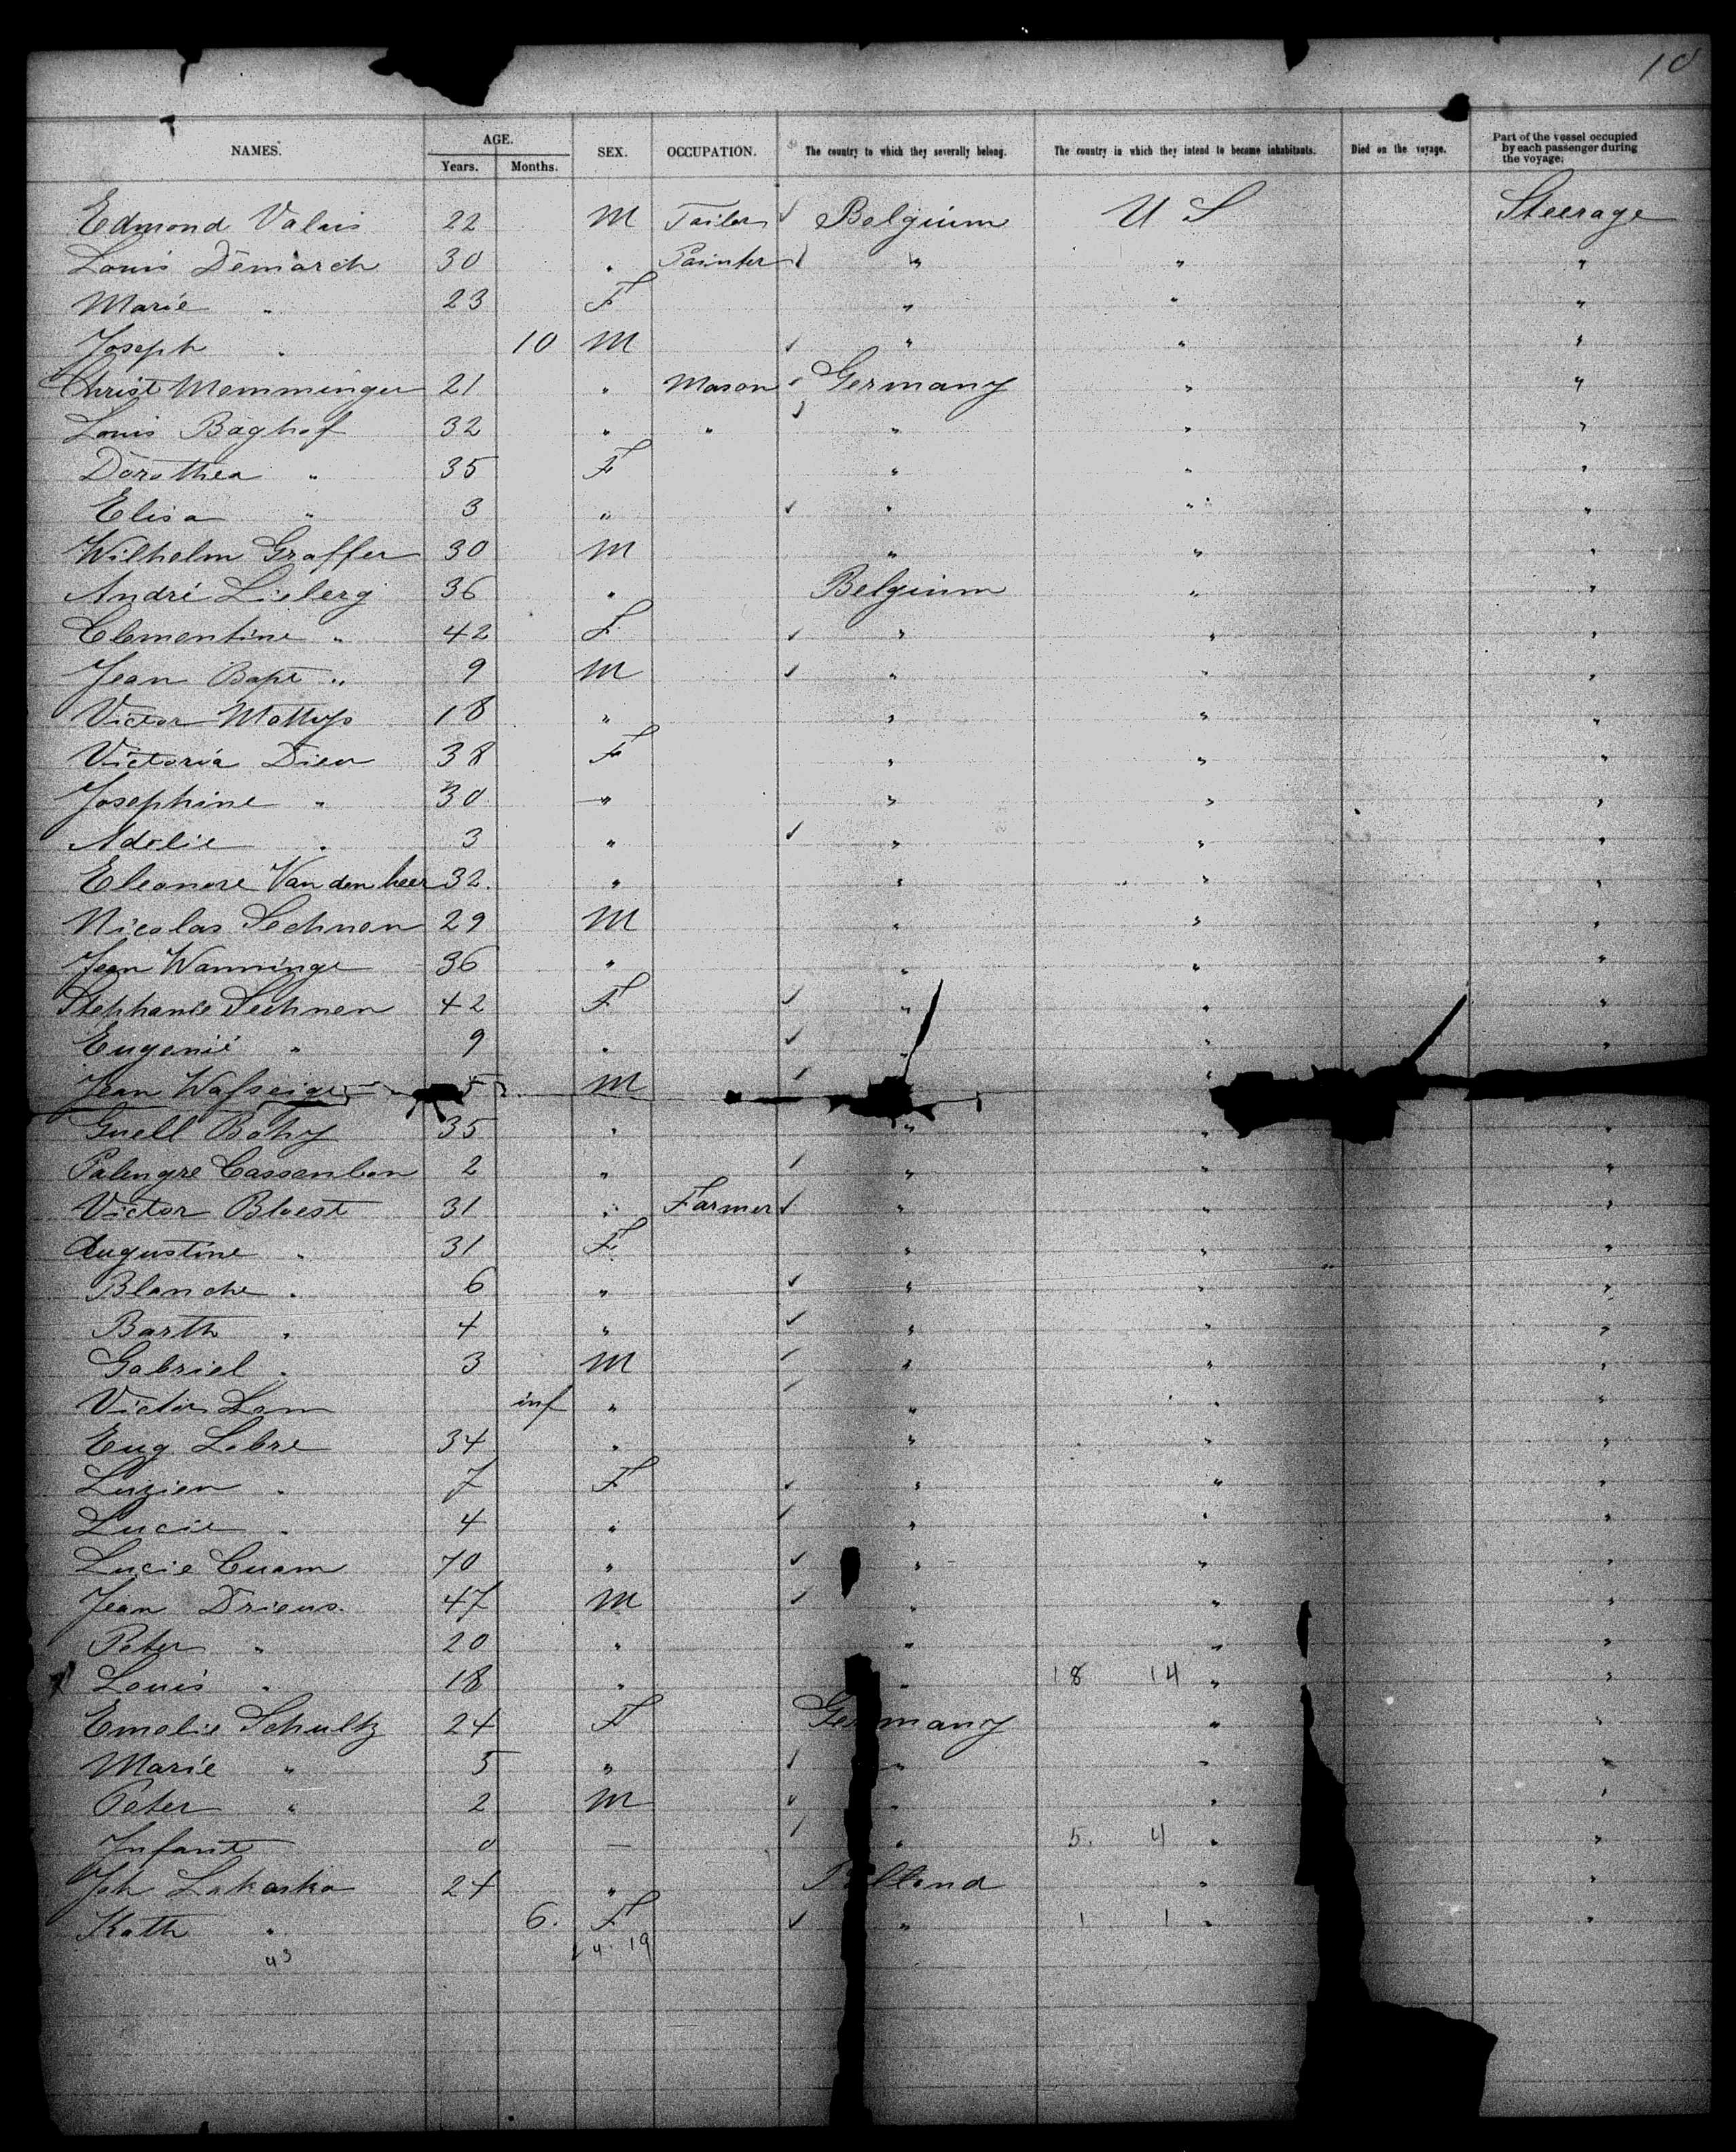 10
NAMES. AGE. Years. Months. SEX. OCCUPATION. The country to which they severally belong. The country in which they intend to become inhabitants. Died on the voyage. Part of the vessel occupied by each passenger during the voyage.
Edmond Valais 22 M Tailor Belgium U S Steerage
Louis Demarch 30 " Painter " " "
Marie " 23 F " " "
Joseph " 10 M " " "
Christ Memminger 21 " Mason Germany " "
Louis Baghof 32 " " " " "
Dorothea " 35 F " " "
Elisa " 3 " " " "
Wilhelm Graffer 30 M " " "
André Lieberg 36 " Belgium " "
Clementine " 42 F " " "
Jean Bapt " 9 M " " "
Victor Mattys 18 " " " "
Victoria Dieu 38 F " " "
Josephine " 30 " " " "
Adelie " 3 " " " "
Eleanore Van den heer 32 " " " "
Nicolas Sechnen 29 M " " "
Jean Wanninge 36 " " " "
Stephanie Sechnen 42 F " " "
Eugenié " 9 " " " "
Jean 5 M "
Guell Bohy 35 " " " "
Palmyre Cassanbon 2 " " " "
Victor Bloest 31 " Farmer " " "
Augustine " 31 F " " "
Blanche " 6 " " " "
Barth " 4 " " " "
Gabriel " 3 M " " "
Victor Lem inf " " " "
Eug Lebre 34 " " " "
Luzien " 7 F " " "
Lucie " 4 " " " "
Lucie Cuam 70 " " " "
Jean Drieus 47 M " " "
Peter " 20 " " " "
Louis " 18 " " 18 14 " "
Emelie Schultz 24 F Germany " "
Marie " 5 " " " "
Peter " 2 M " " "
Infant 0 — " 5. 4 " "
Joh Lakaska 24 " " "
Kath " 6. F " 1 1 " "
43 24. 19